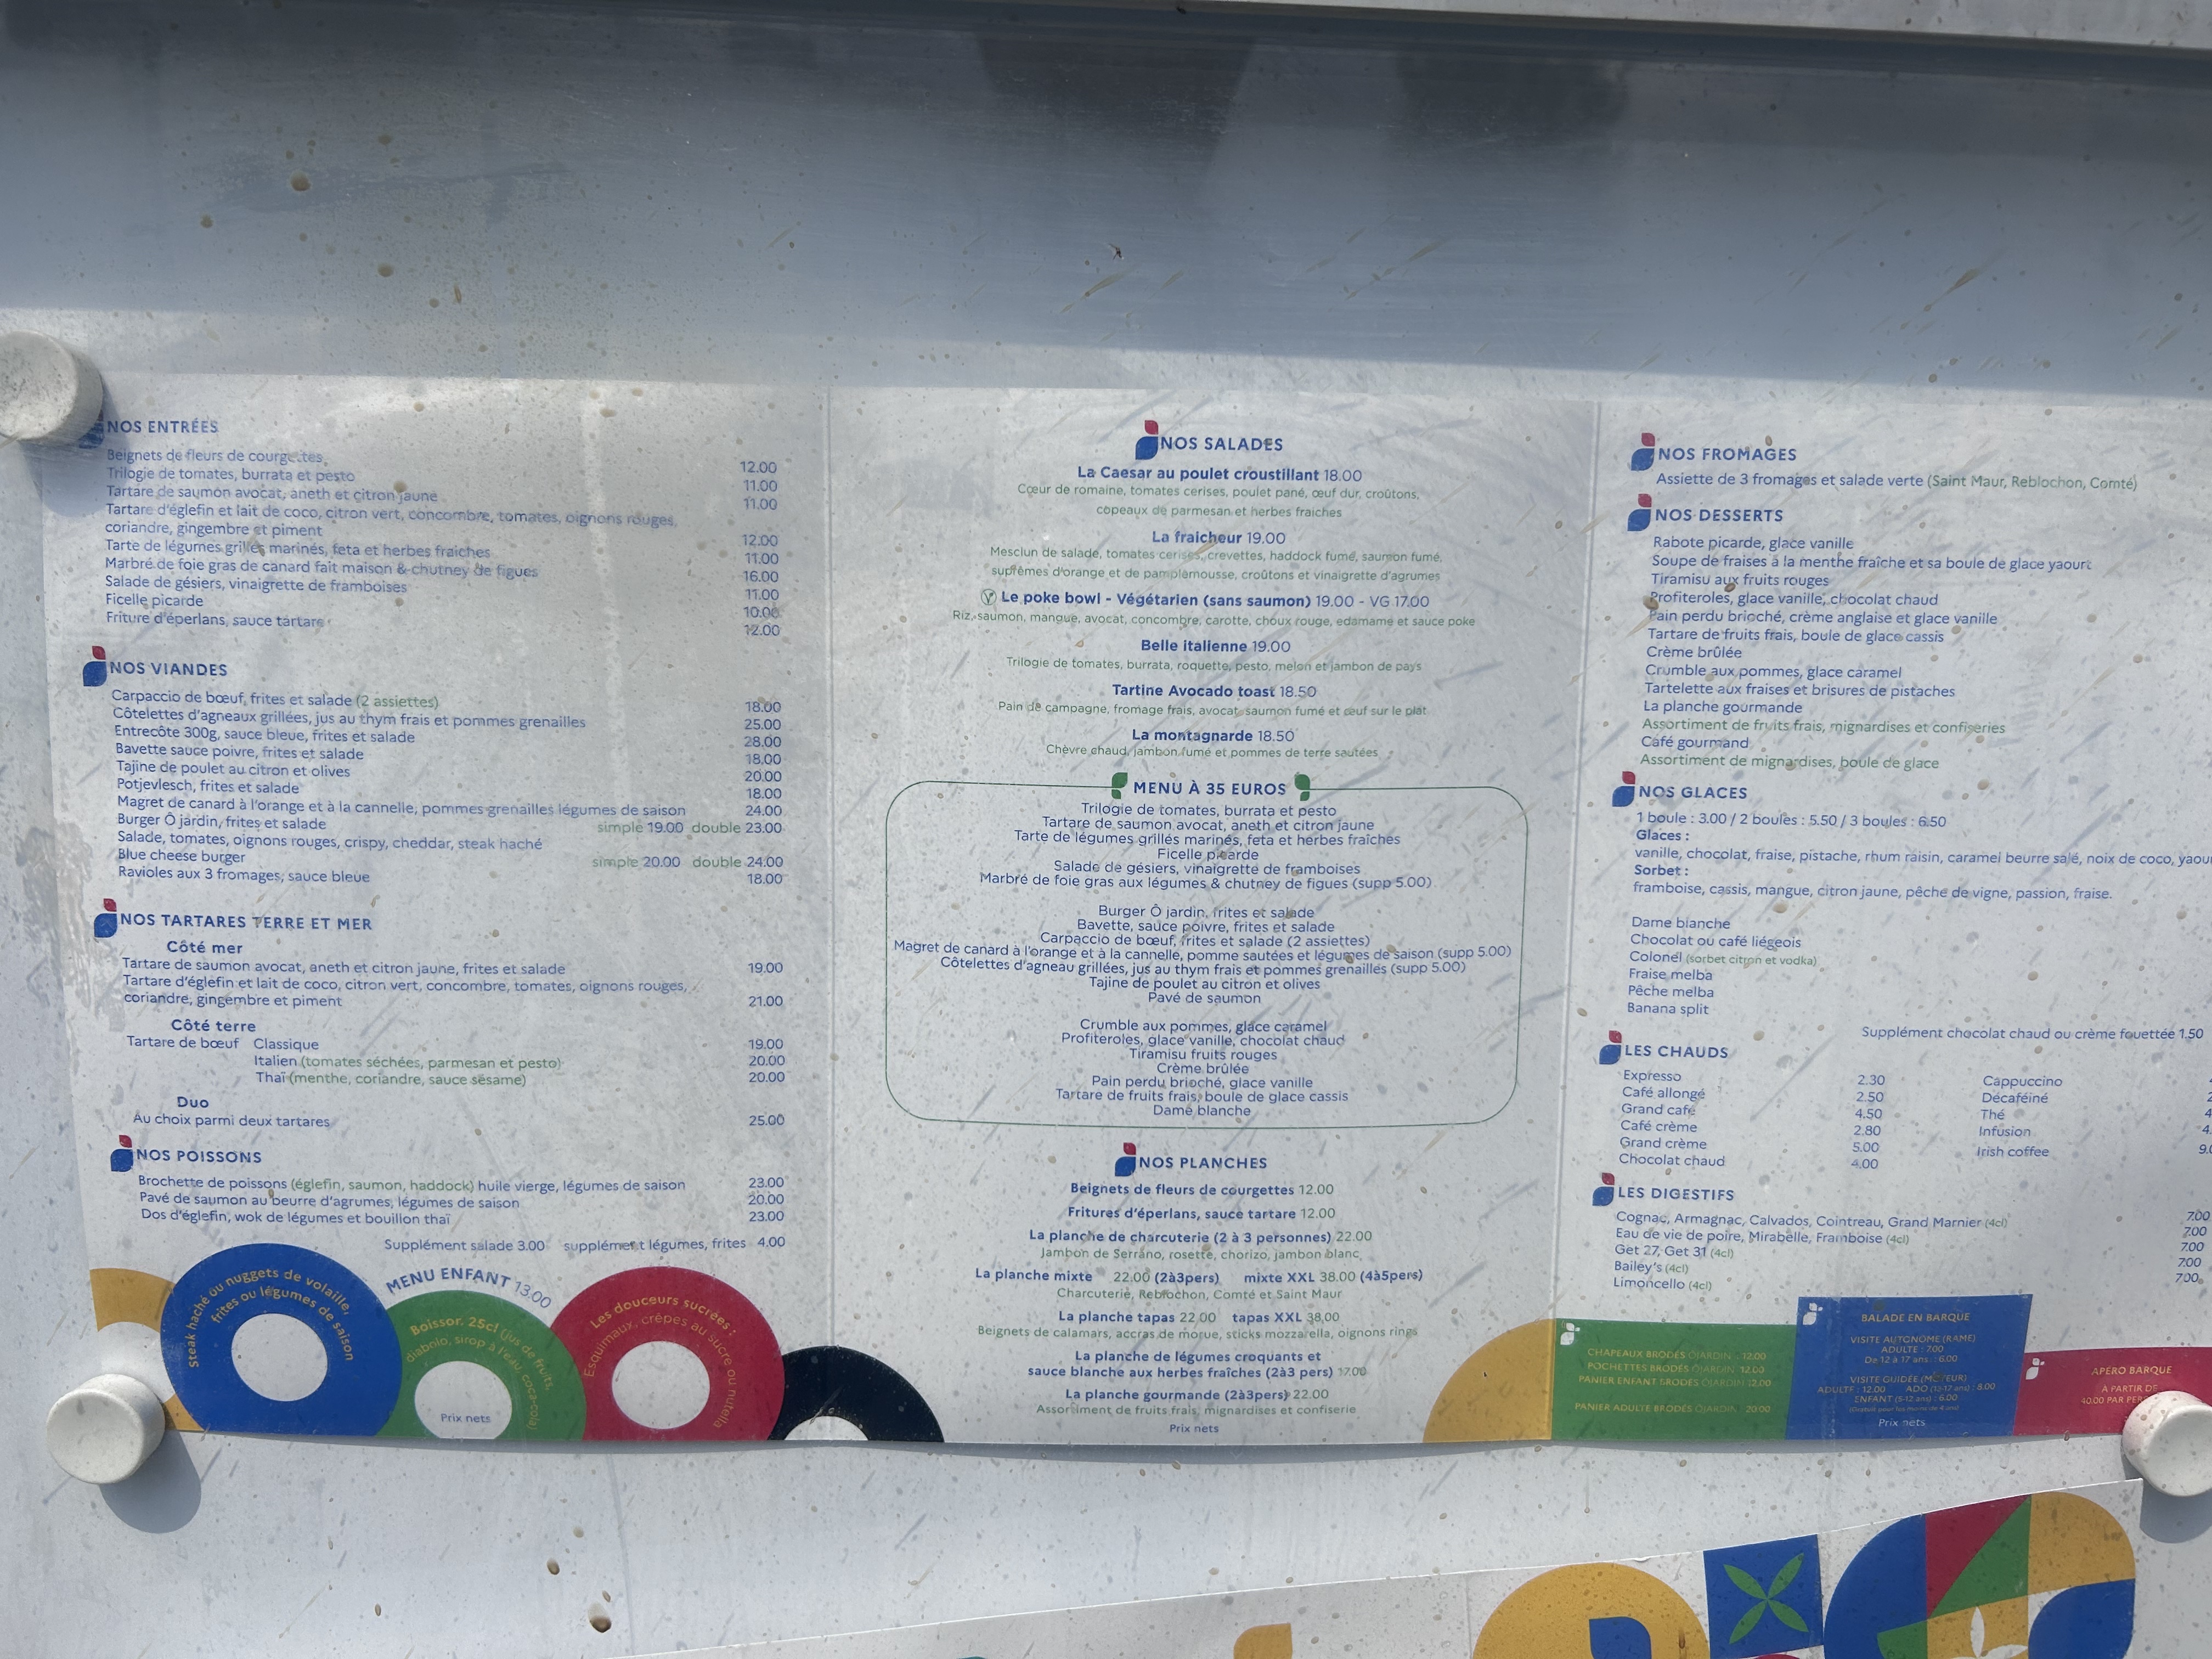 NOS ENTRÉES
Beignets de fleurs de courgettes, 12.00
Trilogie de tomates, burrata et pesto 11.00
Tartare de saumon avocat, aneth et citron jaune 11.00
Tartare d'églefin et lait de coco, citron vert, concombre, tomates, oignons rouges,
coriandre, gingembre et piment 12.00
Tarte de légumes grillés marinés, feta et herbes fraîches 11.00
Marbré de foie gras de canard fait maison & chutney de figues 16.00
Salade de gésiers, vinaigrette de framboises 11.00
Ficelle picarde 10.00
Friture d'éperlans, sauce tartare 12.00
NOS VIANDES
Carpaccio de bœuf, frites et salade (2 assiettes) 18.00
Côtelettes d'agneaux grillées, jus au thym frais et pommes grenailles 25.00
Entrecôte 300g, sauce bleue, frites et salade 28.00
Bavette sauce poivre, frites et salade 18.00
Tajine de poulet au citron et olives 20.00
Potjevlesch, frites et salade 18.00
Magret de canard à l'orange et à la cannelle, pommes grenailles légumes de saison 24.00
Burger Ô jardin, frites et salade simple 19.00 double 23.00
Salade, tomates, oignons rouges, crispy, cheddar, steak haché
Blue cheese burger simple 20.00 double 24.00
Ravioles aux 3 fromages, sauce bleue 18.00
NOS TARTARES TERRE ET MER
Côté mer
Tartare de saumon avocat, aneth et citron jaune, frites et salade 19.00
Tartare d'églefin et lait de coco, citron vert, concombre, tomates, oignons rouges,
coriandre, gingembre et piment 21.00
Côté terre
Tartare de bœuf Classique 19.00
Italien (tomates séchées, parmesan et pesto) 20.00
Thaï (menthe, coriandre, sauce sésame) 20.00
Duo
Au choix parmi deux tartares 25.00
NOS POISSONS
Brochette de poissons (églefin, saumon, haddock) huile vierge, légumes de saison 23.00
Pavé de saumon au beurre d'agrumes, légumes de saison 20.00
Dos d'églefin, wok de légumes et bouillon thaï 23.00
Supplément salade 3.00 supplément légumes, frites 4.00
MENU ENFANT 13.00
Steak haché ou nuggets de volaille,
frites ou légumes de saison
Boisson 25cl (jus de fruits,
diabolo, sirop à l'eau, coca-cola)
Prix nets
Les douceurs sucrées :
Esquimaux, crêpes au sucre ou nutella
NOS SALADES
La Caesar au poulet croustillant 18.00
Cœur de romaine, tomates cerises, poulet pané, œuf dur, croûtons,
copeaux de parmesan et herbes fraiches
La fraicheur 19.00
Mesclun de salade, tomates cerises, crevettes, haddock fumé, saumon fumé,
suprêmes d'orange et de pamplemousse, croûtons et vinaigrette d'agrumes
Le poke bowl - Végétarien (sans saumon) 19.00 - VG 17.00
Riz, saumon, mangue, avocat, concombre, carotte, choux rouge, edamame et sauce poke
Belle italienne 19.00
Trilogie de tomates, burrata, roquette, pesto, melon et jambon de pays
Tartine Avocado toast 18.50
Pain de campagne, fromage frais, avocat, saumon fumé et œuf sur le plat
La montagnarde 18.50
Chèvre chaud, jambon fumé et pommes de terre sautées
MENU À 35 EUROS
Trilogie de tomates, burrata et pesto
Tartare de saumon avocat, aneth et citron jaune
Tarte de légumes grillés marinés, feta et herbes fraîches
Ficelle picarde
Salade de gésiers, vinaigrette de framboises
Marbré de foie gras aux légumes & chutney de figues (supp 5.00)
Burger Ô jardin, frites et salade
Bavette, sauce poivre, frites et salade
Carpaccio de bœuf, frites et salade (2 assiettes)
Magret de canard à l'orange et à la cannelle, pomme sautées et légumes de saison (supp 5.00)
Côtelettes d'agneau grillées, jus au thym frais et pommes grenailles (supp 5.00)
Tajine de poulet au citron et olives
Pavé de saumon
Crumble aux pommes, glace caramel
Profiteroles, glace vanille, chocolat chaud
Tiramisu fruits rouges
Crème brûlée
Pain perdu brioché, glace vanille
Tartare de fruits frais, boule de glace cassis
Dame blanche
NOS PLANCHES
Beignets de fleurs de courgettes 12.00
Fritures d'éperlans, sauce tartare 12.00
La planche de charcuterie (2 à 3 personnes) 22.00
Jambon de Serrano, rosette, chorizo, jambon blanc
La planche mixte 22.00 (2à3pers) mixte XXL 38.00 (4à5pers)
Charcuterie, Reblochon, Comté et Saint Maur
La planche tapas 22.00 tapas XXL 38.00
Beignets de calamars, accras de morue, sticks mozzarella, oignons rings
La planche de légumes croquants et
sauce blanche aux herbes fraîches (2à3 pers) 17.00
La planche gourmande (2à3pers) 22.00
Assortiment de fruits frais, mignardises et confiserie
Prix nets
NOS FROMAGES
Assiette de 3 fromages et salade verte (Saint Maur, Reblochon, Comté)
NOS DESSERTS
Rabote picarde, glace vanille
Soupe de fraises à la menthe fraîche et sa boule de glace yaourt
Tiramisu aux fruits rouges
Profiteroles, glace vanille, chocolat chaud
Pain perdu brioché, crème anglaise et glace vanille
Tartare de fruits frais, boule de glace cassis
Crème brûlée
Crumble aux pommes, glace caramel
Tartelette aux fraises et brisures de pistaches
La planche gourmande
Assortiment de fruits frais, mignardises et confiseries
Café gourmand
Assortiment de mignardises, boule de glace
NOS GLACES
1 boule : 3.00 / 2 boules : 5.50 / 3 boules : 6.50
Glaces :
vanille, chocolat, fraise, pistache, rhum raisin, caramel beurre salé, noix de coco, yaou
Sorbet :
framboise, cassis, mangue, citron jaune, pêche de vigne, passion, fraise.
Dame blanche
Chocolat ou café liégeois
Colonel (sorbet citron et vodka)
Fraise melba
Pêche melba
Banana split
Supplément chocolat chaud ou crème fouettée 1.50
LES CHAUDS
Expresso 2.30 Cappuccino
Café allongé 2.50 Décaféiné
Grand café 4.50 Thé
Café crème 2.80 Infusion
Grand crème 5.00 Irish coffee
Chocolat chaud 4.00
LES DIGESTIFS
Cognac, Armagnac, Calvados, Cointreau, Grand Marnier (4cl) 7.00
Eau de vie de poire, Mirabelle, Framboise (4cl) 7.00
Get 27, Get 31 (4cl) 7.00
Bailey's (4cl) 7.00
Limoncello (4cl) 7.00
CHAPEAUX BRODÉS ÔJARDIN : 12.00
POCHETTES BRODÉS ÔJARDIN : 12.00
PANIER ENFANT BRODÉS ÔJARDIN : 12.00
PANIER ADULTE BRODÉS ÔJARDIN : 20.00
BALADE EN BARQUE
VISITE AUTONOME (RAME)
ADULTE : 7.00
De 12 à 17 ans : 6.00
VISITE GUIDÉE (MOTEUR)
ADULTE : 12.00 ADO (12-17 ans) : 8.00
ENFANT (5-12 ans) : 6.00
Prix nets
APÉRO BARQUE
À PARTIR DE
40.00 PAR